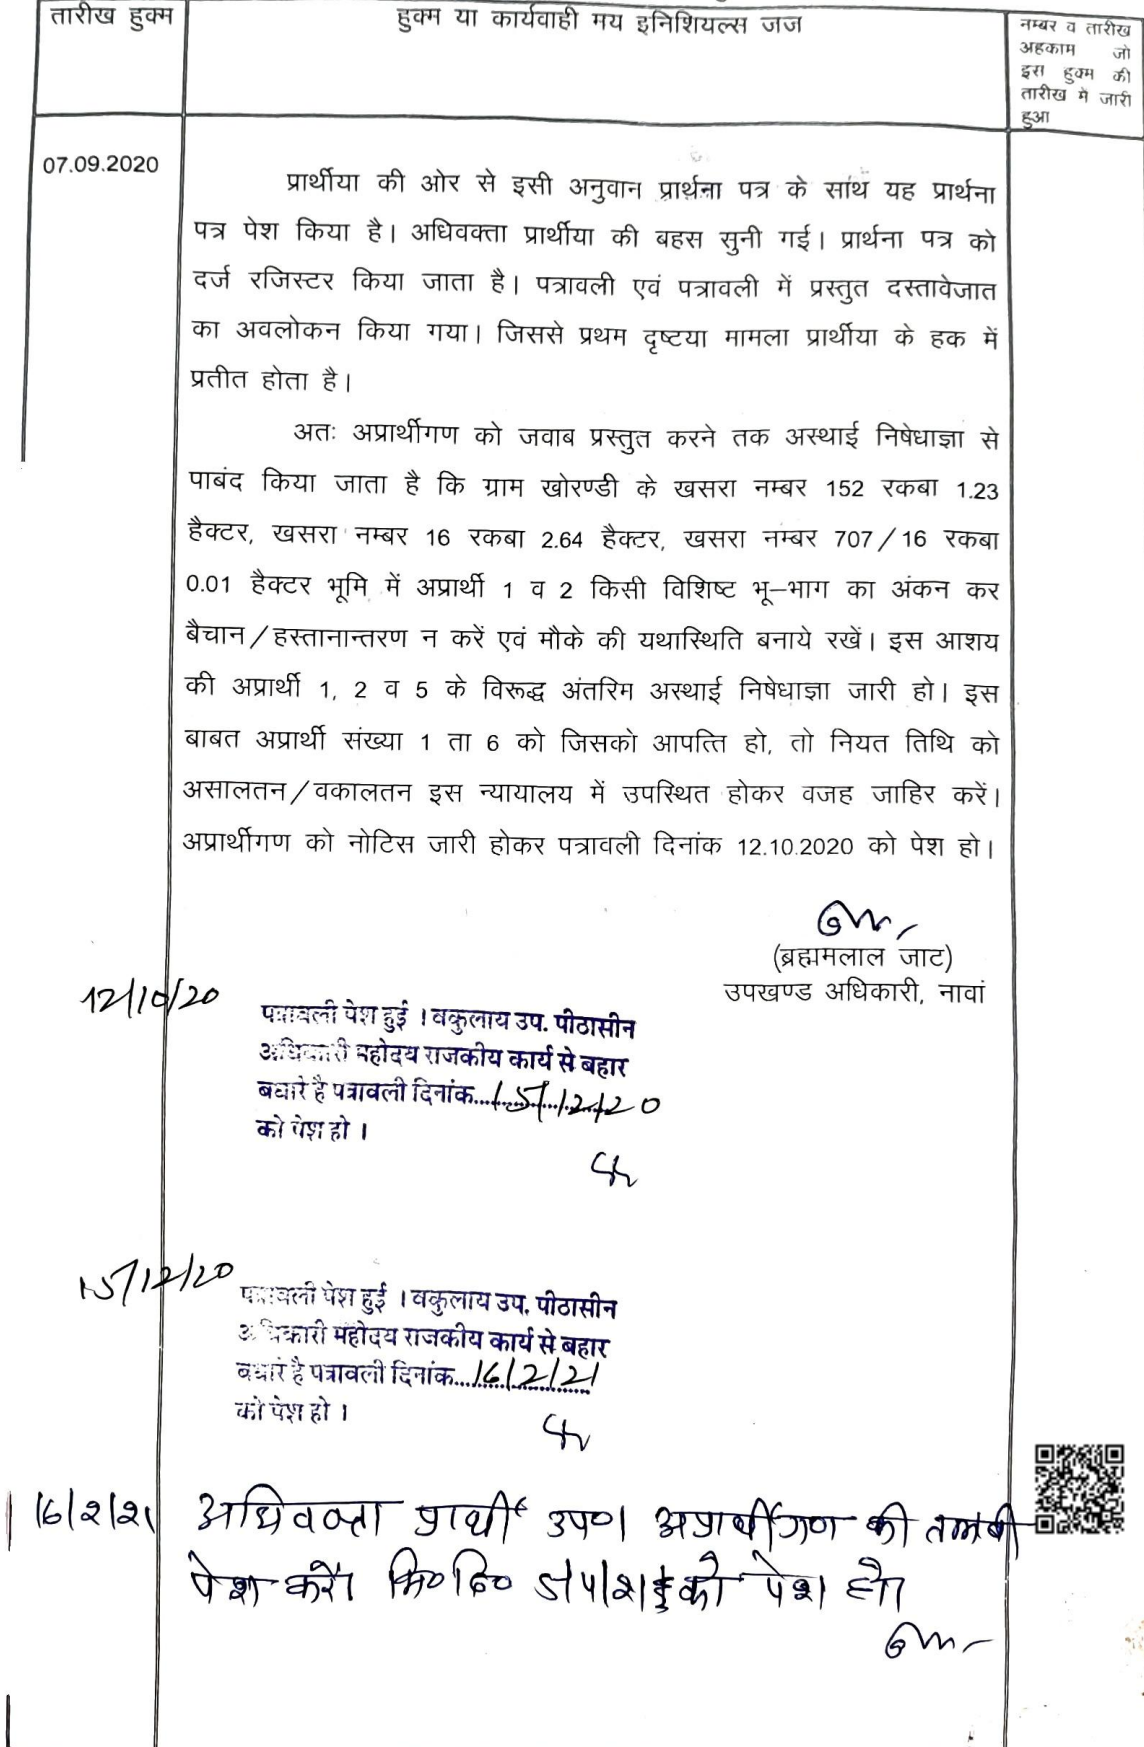 तारीख हुक्म
हुक्म या कार्यवाही मय इनिशियल्स जज
नम्बर व तारीख
अहकाम जो
इस हुक्म की
तारीख मे जारी
हुआ
07.09.2020
प्रार्थीया की ओर से इसी अनुवान प्रार्थना पत्र के सांथ यह प्रार्थना
पत्र पेश किया है। अधिवक्ता प्रार्थीया की बहस सुनी गई। प्रार्थना पत्र को
दर्ज रजिस्टर किया जाता है। पत्रावली एवं पत्रावली में प्रस्तुत दस्तावेजात
का अवलोकन किया गया। जिससे प्रथम दृष्टया मामला प्रार्थीया के हक में
प्रतीत होता है।
अतः अप्रार्थीगण को जवाब प्रस्तुत करने तक अस्थाई निषेधाज्ञा से
पाबंद किया जाता है कि ग्राम खोरण्डी के खसरा नम्बर 152 रकबा 1.23
हैक्टर, खसरा नम्बर 16 रकबा 2.64 हैक्टर, खसरा नम्बर 707/16 रकबा
0.01 हैक्टर भूमि में अप्रार्थी 1 व 2 किसी विशिष्ट भू–भाग का अंकन कर
बैचान/हस्तानान्तरण न करें एवं मौके की यथास्थिति बनाये रखें। इस आशय
की अप्रार्थी 1, 2 व 5 के विरूद्ध अंतरिम अस्थाई निषेधाज्ञा जारी हो। इस
बाबत अप्रार्थी संख्या 1 ता 6 को जिसको आपत्ति हो, तो नियत तिथि को
असालतन/वकालतन इस न्यायालय में उपस्थित होकर वजह जाहिर करें।
अप्रार्थीगण को नोटिस जारी होकर पत्रावली दिनांक 12.10.2020 को पेश हो।
(ब्रह्ममलाल जाट)
उपखण्ड अधिकारी, नावां
12/10/20
पत्रावली पेश हुई । वकुलाय उप. पीठासीन
अधिकारी महोदय राजकीय कार्य से बहार
बधारे है पत्रावली दिनांक...15/12/20
को पेश हो ।
15/12/20
पत्रावली पेश हुई । वकुलाय उप. पीठासीन
अधिकारी महोदय राजकीय कार्य से बहार
बधारे है पत्रावली दिनांक...16/2/21
को पेश हो ।
16/2/21 अधिवक्ता प्रार्थी उप० अप्रार्थीगण की तलबी
पेश करें। मि०दि० को पेश हो।